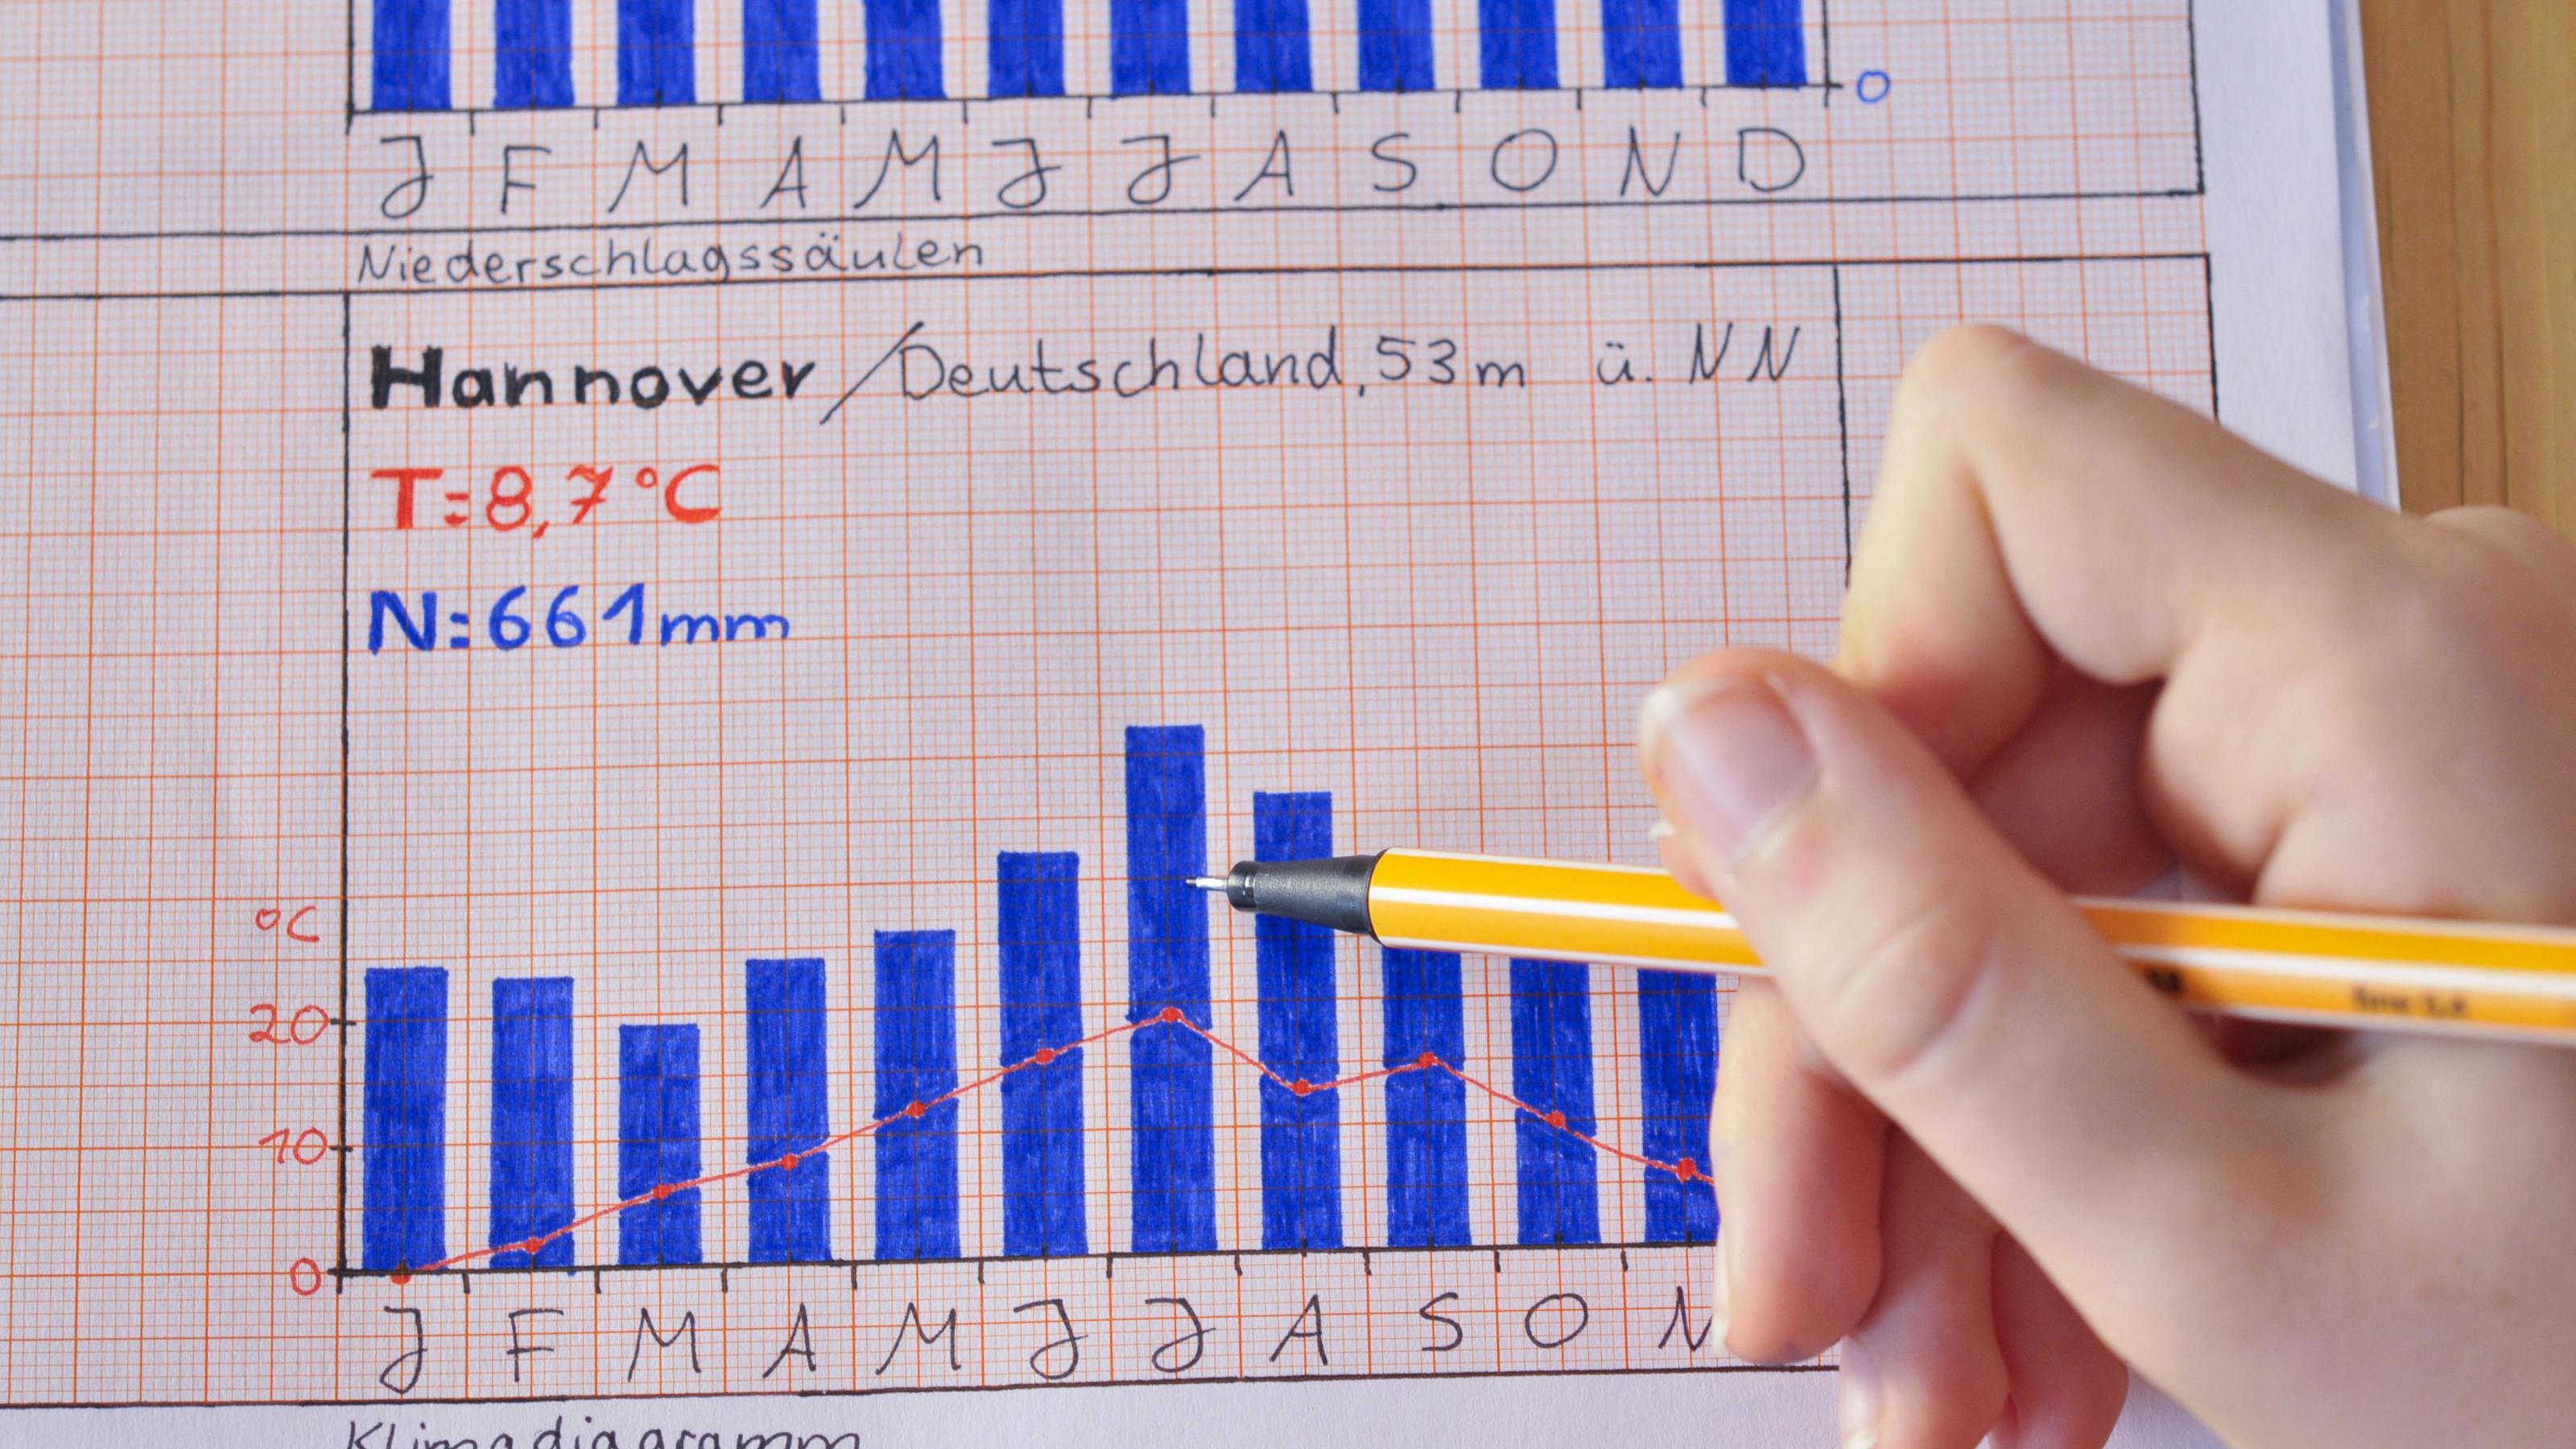 0
J F M A M J J A S O N D
Niederschlagssäulen
Hannover / Deutschland, 53m ü. NN
T=8,7°C
N=661mm
°C
20
10
0
J F M A M J J A S O N
Klimadiagramm